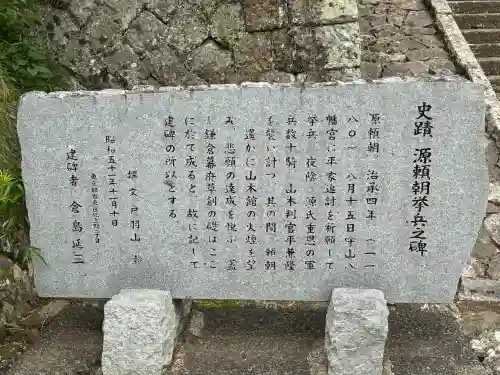 史蹟 源頼朝挙兵之碑
源頼朝 治承四年（一一
八〇） 八月十五日守山八
幡宮に平家追討を祈願して
挙兵 夜陰 源氏重恩の軍
兵数十騎 山木判官平兼隆
を襲い討つ 其の間 頼朝
遙かに山木館の火煙を望
み 悲願の達成を悦ぶ 蓋
し鎌倉幕府草創の礎はここ
に於て成ると 故に記して
建碑の所以とする
撰文 戸羽山 瀚
昭和五十二年十一月十日
建碑者 倉島延三